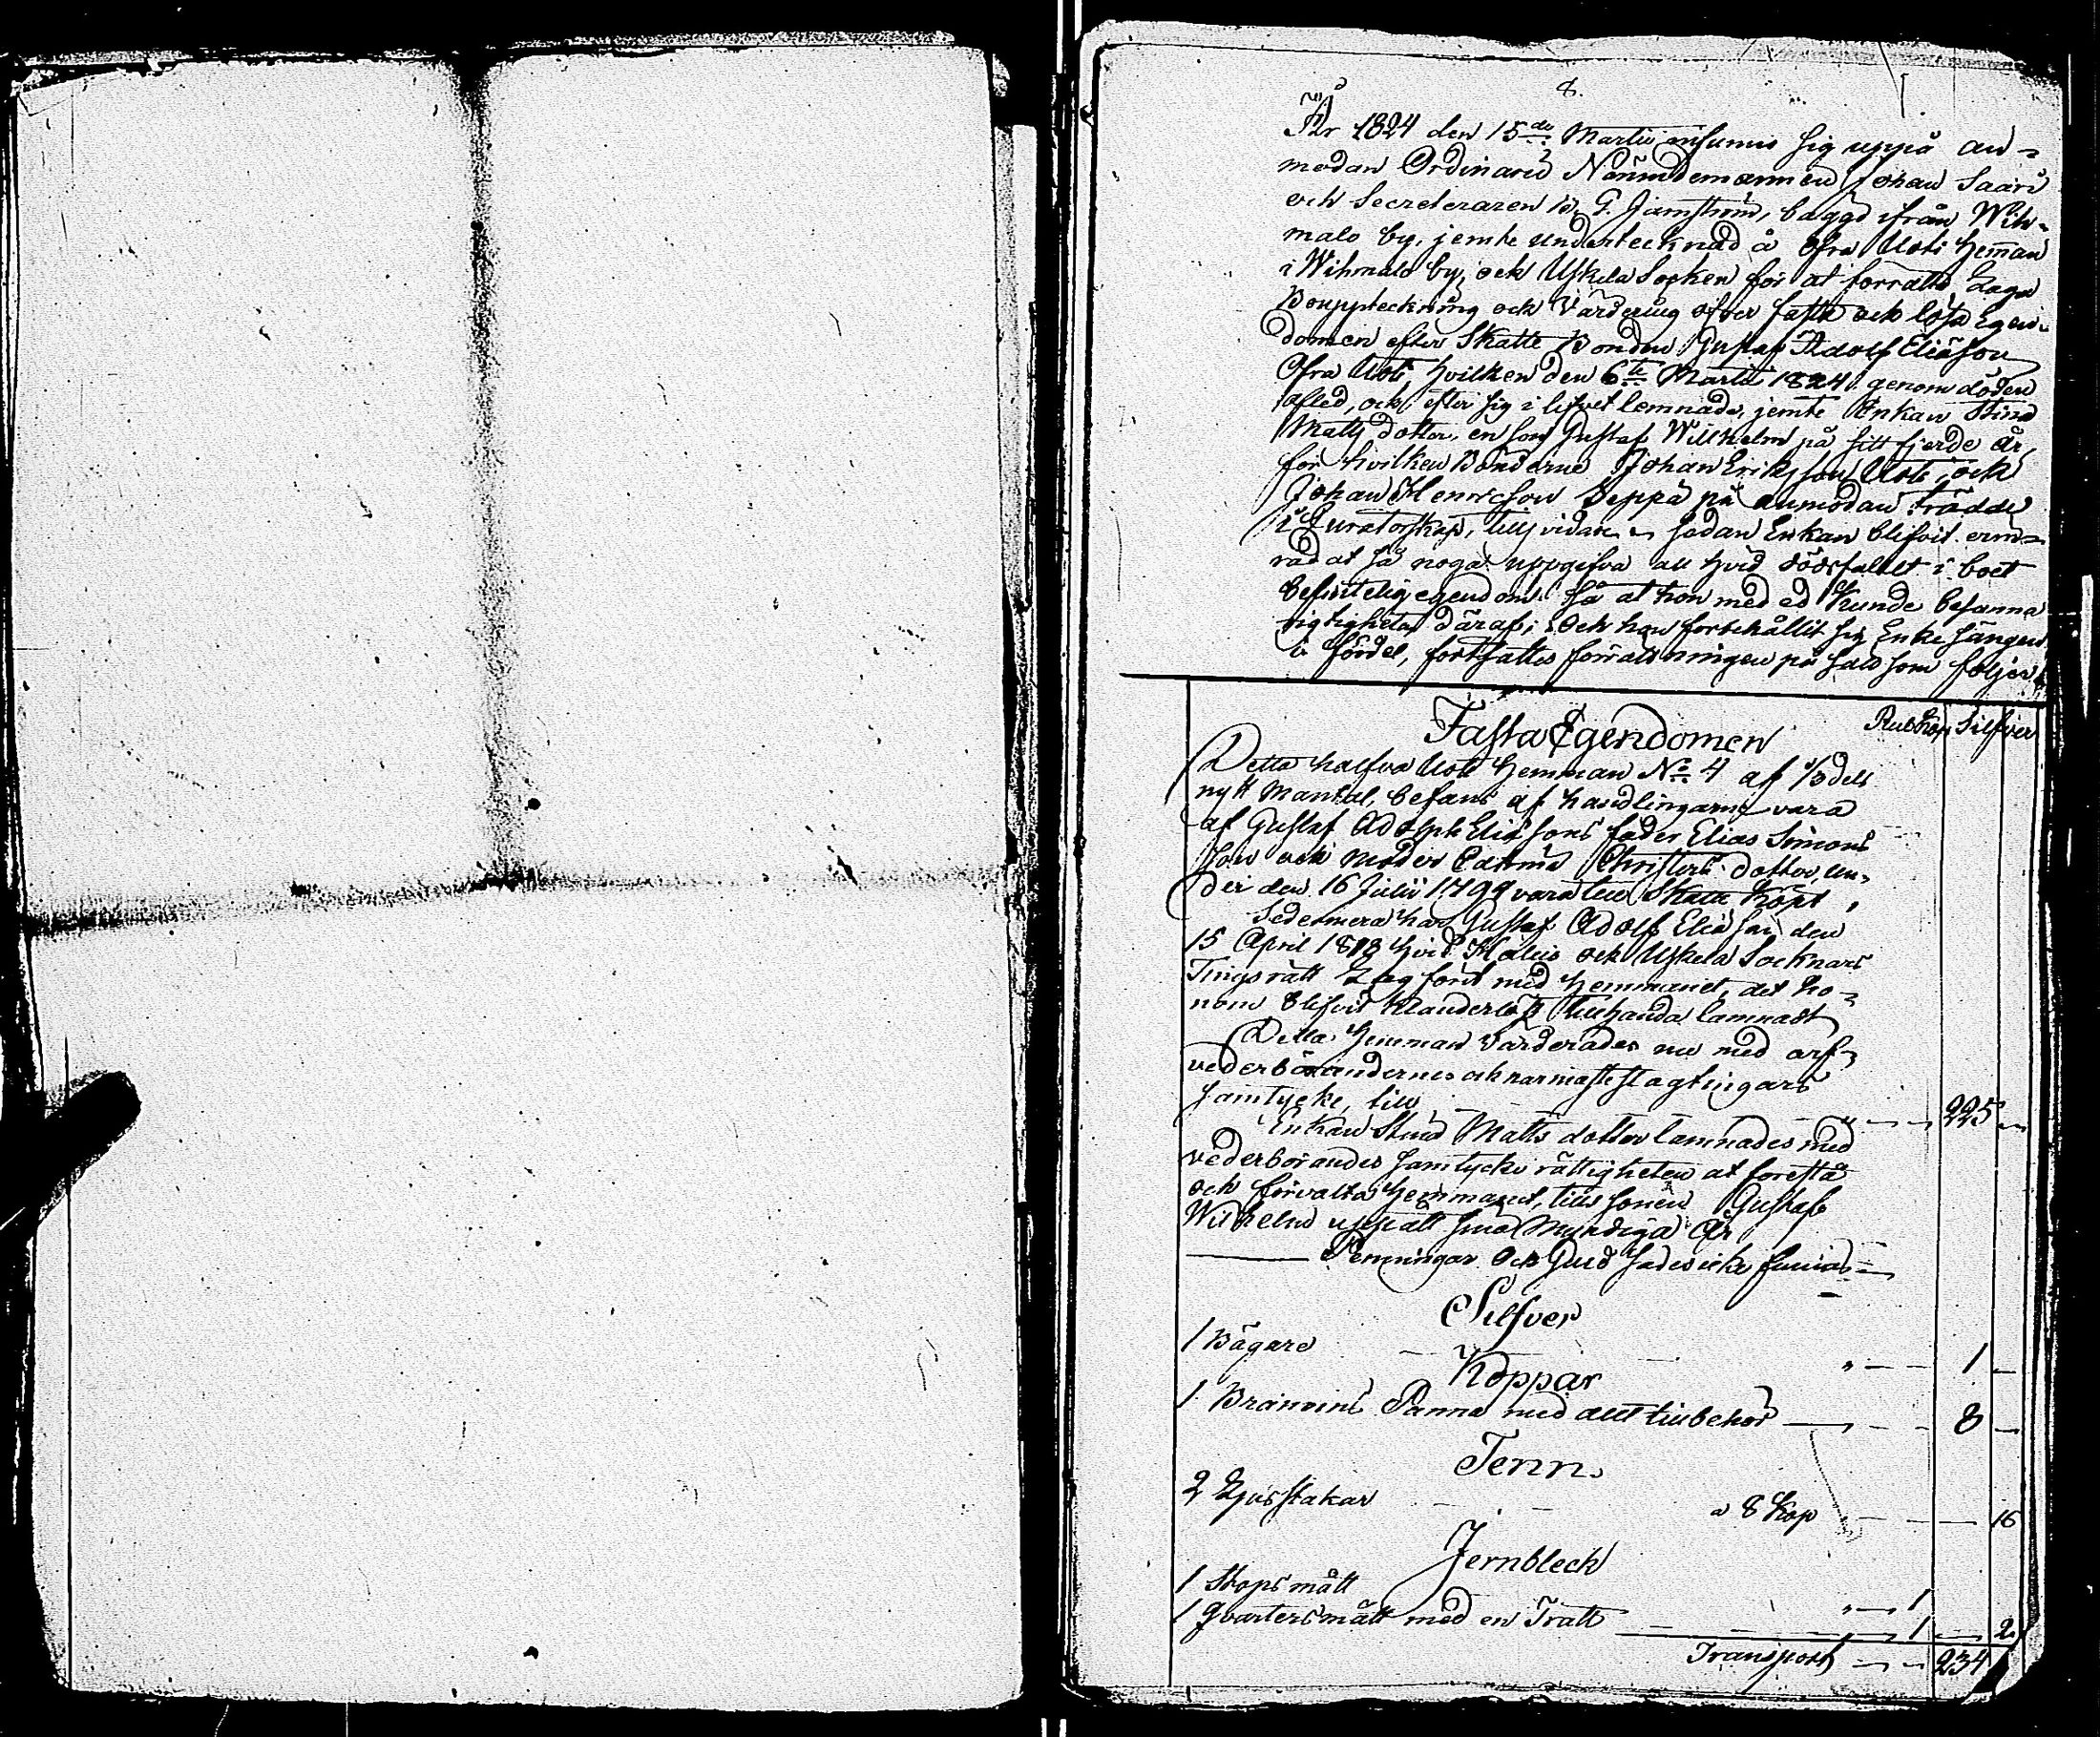 8.
År 1824 den 15de Martii infunno sig uppå an=
modan Ordinarie Nämndemannen Johan Saari
och Secreteraren G. Jernström, bägge ifrån Wih=
malo by, jemte undertecknad å Öfra Uoti Hemman
i Wihmalo by, och Uskela Socken för at förrätta Laga
Bouppteckning och Värdering öfver fasta och lösa Egen=
domen efter Skatte Bonden Gustaf Adolf Eliæson
Öfra Uoti, hvilken den 6te Martii 1824 genom döden
afled, och efter sig i lifvet lemnade, jemte Enkan Stina
Matts dotter, en son Gustaf Willhelm på sitt fjerde år,
för hvilken Bönderne Johan Eriksson Uoti, och
Johan Henricson Seppä på anmodan trädde
i Curatorskap, tills vidare, sedan Enkan blifvit erin=
rad at så noga uppgifva all hvid dödsfallet i boet
befintelig egendom så at hon med ed kunde besanna
rigtigheten däraf; Och hon förbehållit sig Enkesängen
i fördel, fortsattes förrättningen på sätt som följer
Rub Kop Silfver
Fasta Egendomen
Detta halfva Uoti Hemman No 4 af 1/3 dels
nytt Mantal, befans af handlingarne vara
af Gustaf Adolph Eliæsons fader Elias Simons
son och moder Catrina Christers dotter, un=
der den 16 Julii 1799 vara till Skatte köpt,
Sedermera har Gustaf Adolf Eliæson, den
15 April 1818 hvid Halico och Uskela Socknars
Tingsrätt Lagfarit med Hemmanet, det ho=
nom blifvit klanderlöst tillhanda lämnadt
Detta Hemman värderades nu med arf=
vederbörandernes och närmaste slägtingars
samtycke, till " — — 225 —
Enkan Stina Matts dotter lämnades med
vederbörandes samtycke rättigheten at förestå
och förvalta Hemmanet, tills sonen Gustaf
Wilhelm uppnått sina Myndiga År
— Penningar och Guld sades icke finnas —
Silfver
1 Bägare " — — 1 —
Koppar
1 Brännvins Panna med allt tillbehör — — 8 —
Tenn
2 Ljusstakar a 8 Kop — — 16
Jernbleck
1 Stops mått " — 1
1 Qvartersmått med en Tratt — 1 — 2
Transport — — 234